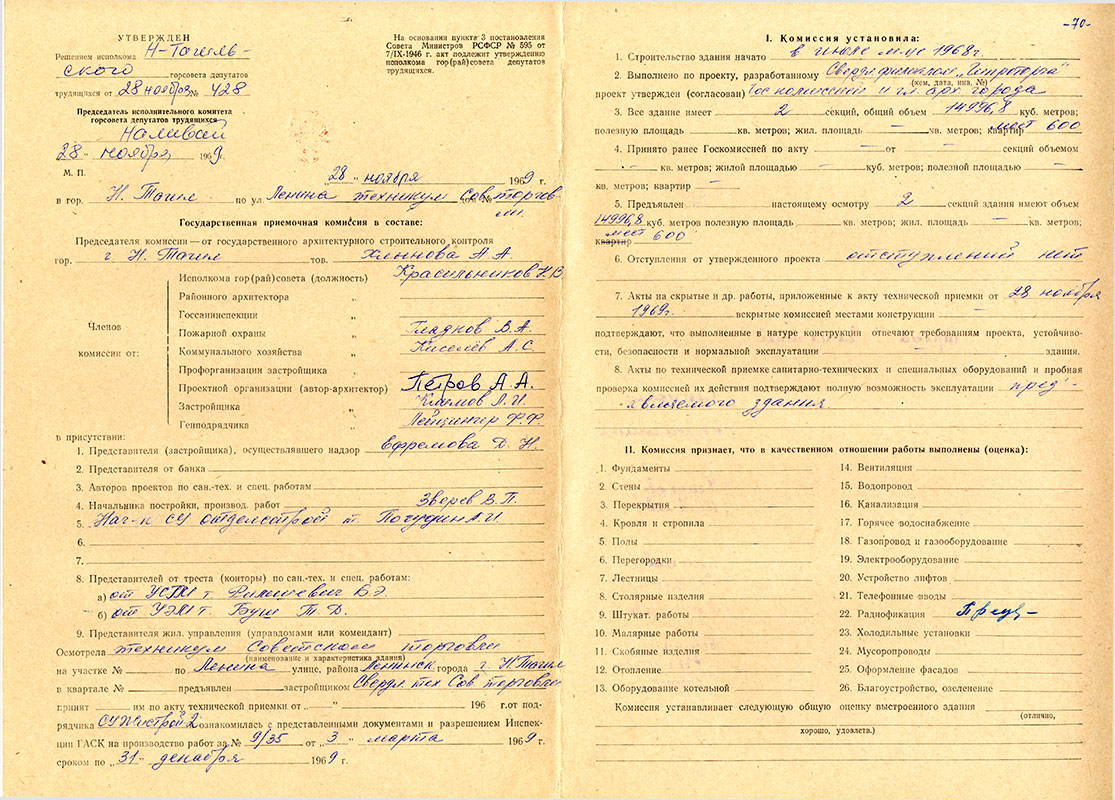 УТВЕРЖДЕН
Решением исполкома Н-Тагиль-
ского горсовета депутатов
трудящихся от 28 ноября № 428
Председатель исполнительного комитета
горсовета депутатов трудящихся
28 - ноября 1969г.
М. П.
На основании пункта 3 постановления
Совета Министров РСФСР № 595 от
7/IX-1946 г. акт подлежит утверждению
исполкома гор(рай)совета депутатов
трудящихся.
„28" ноября 1969 г.
в гор. Н. Тагил по ул. Ленина техникум Сов. торгов-
ли
Государственная приемочная комиссия в составе:
Председателя комиссии — от государственного архитектурного строительного контроля
гор. г. Н. Тагил тов. Хлынова А А
Членов
комиссии от:
Исполкома гор(рай)совета (должность) Красильников Н.В.
Районного архитектора „
Госсанинспекции „
Пожарной охраны „ Гладков В.А.
Коммунального хозяйства „ Киселев А.С.
Профорганизации застройщика „
Проектной организации (автор-архитектор) Петров А.А.
Застройщика „ Климов Л.И.
Генподрядчика „ Лейзингер Ф.Ф.
в присутствии:
1. Представителя (застройщика), осуществлявшего надзор Ефремова Д. Н.
2. Представителя от банка
3. Авторов проектов по сан.-тех. и спец. работам
4. Начальника постройки, производ. работ Зверев В.П.
5. Нач-к СУ Отделстрой т. А.И.
6.
7.
8. Представителей от треста (конторы) по сан.-тех. и спец. работам:
а) от УСТМ т. Б.Э.
б) от УЭМ т. Буш Т.Д.
9. Представителя жил. управления (управдомами или комендант)
Осмотрела техникум Советской торговли
(наименование и характеристика здания)
на участке № по Ленина улице, района Ленинск города г. Н.Тагил
в квартале № предъявлен застройщиком Свердл. тех. Сов. торговли
принят им по акту технической приемки от „ " 196 г. от под-
рядчика СУ Жилстрой-2 ознакомилась с представленными документами и разрешением Инспек-
ции ГАСК на производство работ за № 9/35 от „3" марта 1969 г.
сроком по „31" декабря 1969 г.
-70-
I. Комиссия установила:
1. Строительство здания начато в июле м-це 1968г.
2. Выполнено по проекту, разработанному Свердл. филиалом „Гипроторга"
(кем, дата, инв. №)
проект утвержден (согласован) Гос комиссией и гл. арх. города
3. Все здание имеет 2 секций, общий объем 14996,8 куб. метров;
полезную площадь кв. метров; жил. площадь — кв. метров; квартир мест 600
4. Принято ранее Госкомиссией по акту — от — секций объемом
— кв. метров; жилой площадью — куб. метров; полезной площадью —
кв. метров; квартир —
5. Предъявлен настоящему осмотру 2 секций здания имеют объем
14996,8 куб. метров полезную площадь кв. метров; жил. площадь — кв. метров;
квартир мест 600
6. Отступления от утвержденного проекта отступлений нет
7. Акты на скрытые и др. работы, приложенные к акту технической приемки от 28 ноября
1969г. вскрытые комиссией местами конструкции —
подтверждают, что выполненные в натуре конструкции отвечают требованиям проекта, устойчиво-
сти, безопасности и нормальной эксплуатации — здания.
8. Акты по технической приемке санитарно-технических и специальных оборудований и пробная
проверка комиссией их действия подтверждают полную возможность эксплуатации пред'-
являемого здания.
II. Комиссия признает, что в качественном отношении работы выполнены (оценка):
1. Фундаменты
2. Стены
3. Перекрытия
4. Кровля и стропила
5. Полы
6. Перегородки
7. Лестницы
8. Столярные изделия
9. Штукат. работы
10. Малярные работы
11. Скобяные изделия
12. Отопление
13. Оборудование котельной
14. Вентиляция
15. Водопровод
16. Канализация
17. Горячее водоснабжение
18. Газопровод и газооборудование
19. Электрооборудование
20. Устройство лифтов
21. Телефонные вводы
22. Радиофикация
23. Холодильные установки
24. Мусоропроводы
25. Оформление фасадов
26. Благоустройство, озеленение
Комиссия устанавливает следующую общую оценку выстроенного здания
(отлично,
хорошо, удовлетв.)